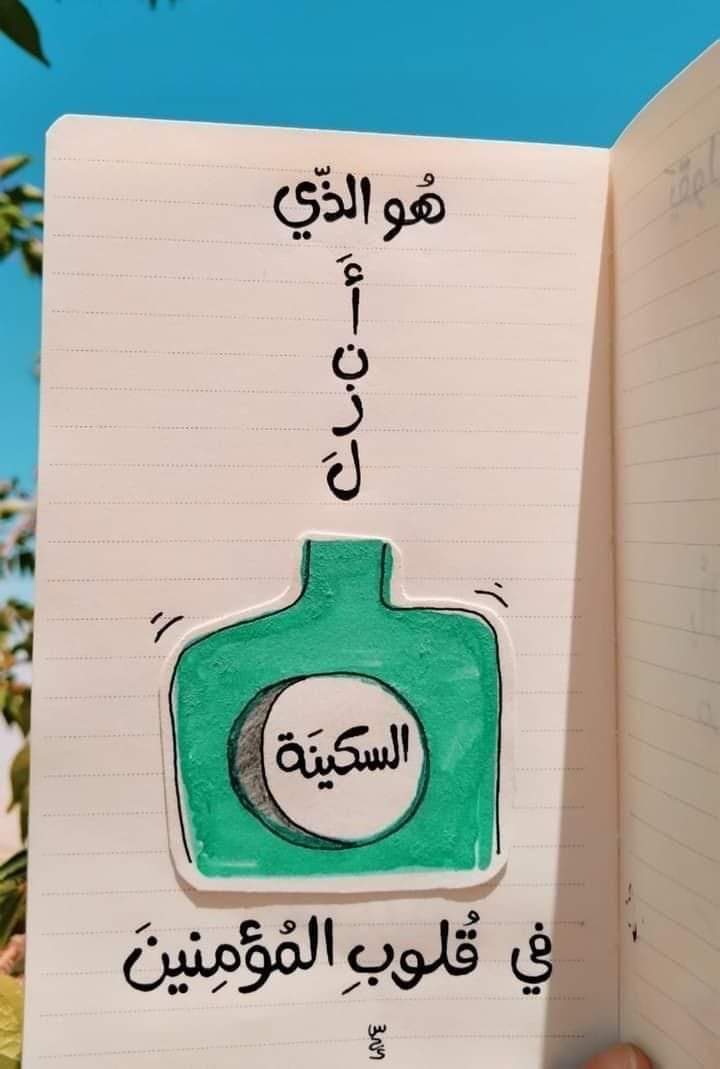 هُو الذّي
أَ
ن
ز
لَ
السكينَة
في قُلوبِ المُؤمِنينَ